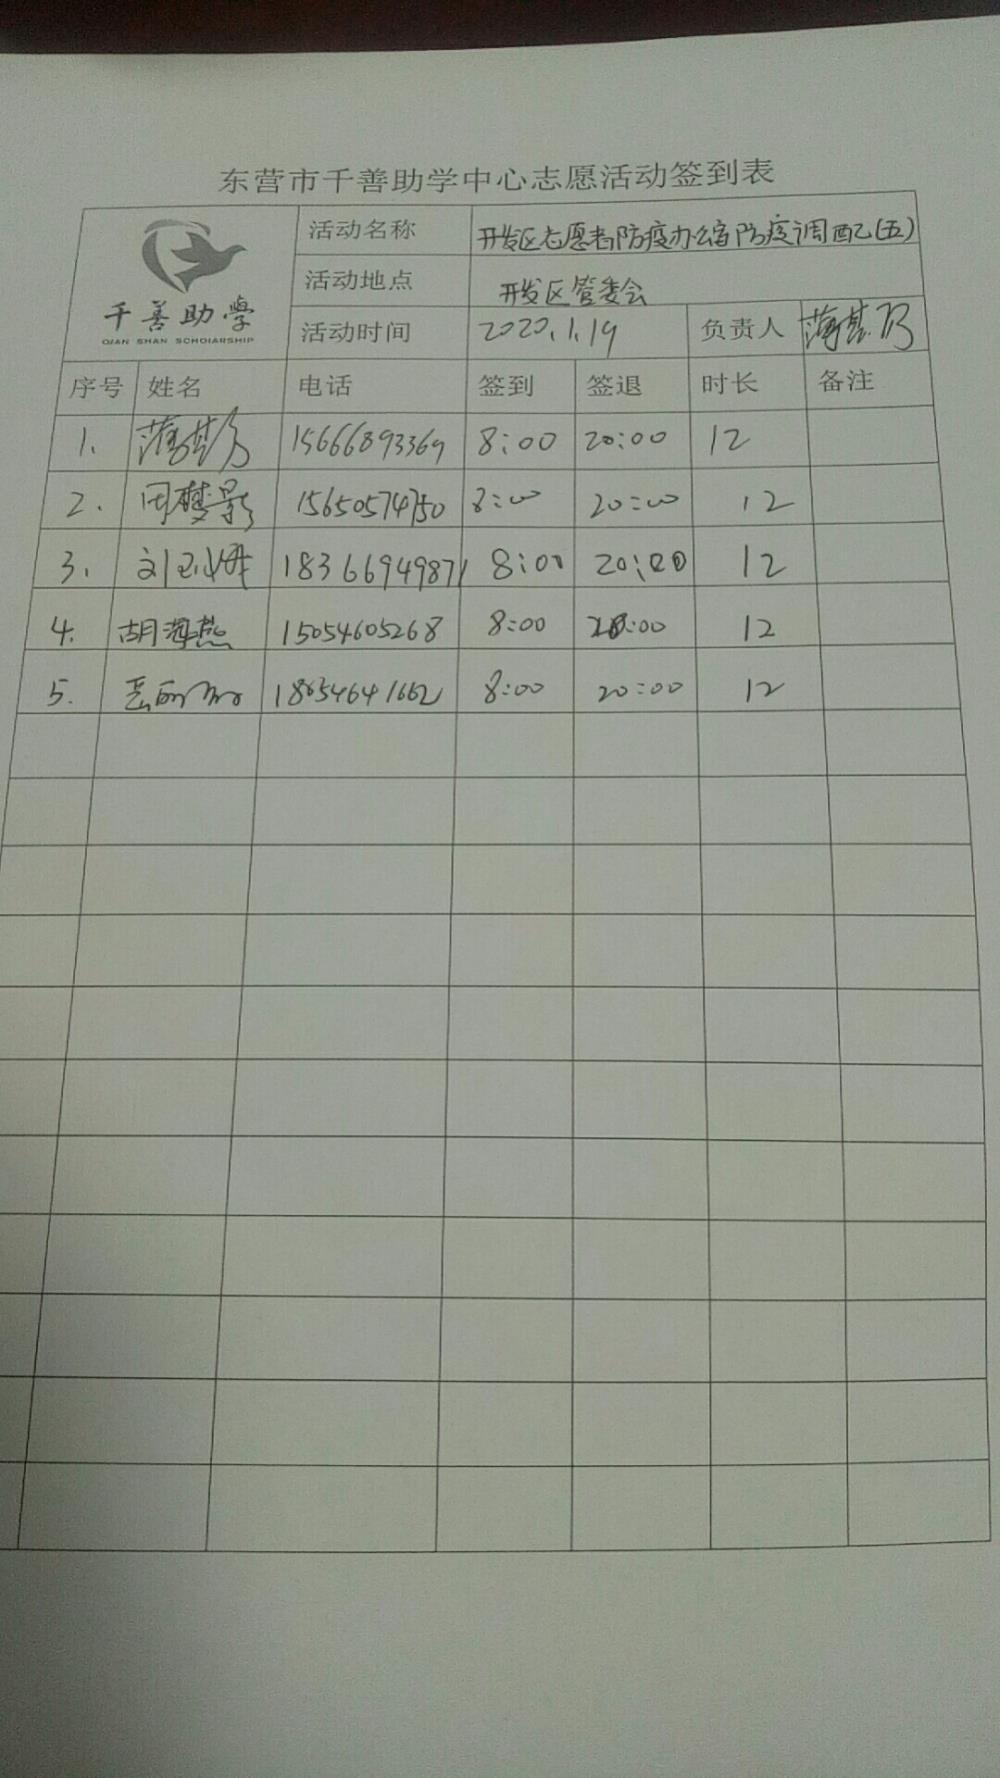 东营市千善助学中心志愿活动签到表
千善助学
QIAN SHAN SCHOLARSHIP
活动名称 开发区志愿者防疫办公室防疫调配(五)
活动地点 开发区管委会
活动时间 2020.1.19 负责人
序号 姓名 电话 签到 签退 时长 备注
1. 15666893369 8:00 20:00 12
2. 周梦影 15650574750 8:00 20:00 12
3. 18366949871 8:00 20:00 12
4. 胡海燕 15054605268 8:00 :00 12
5. 18654641662 8:00 20:00 12